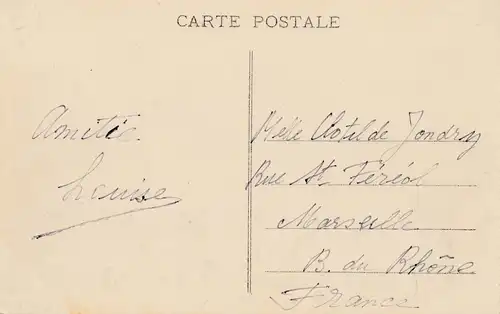 CARTE POSTALE
Amitié.
Louise
Melle Clotilde Jondry
Rue St Féréol
Marseille
B. du Rhône
France